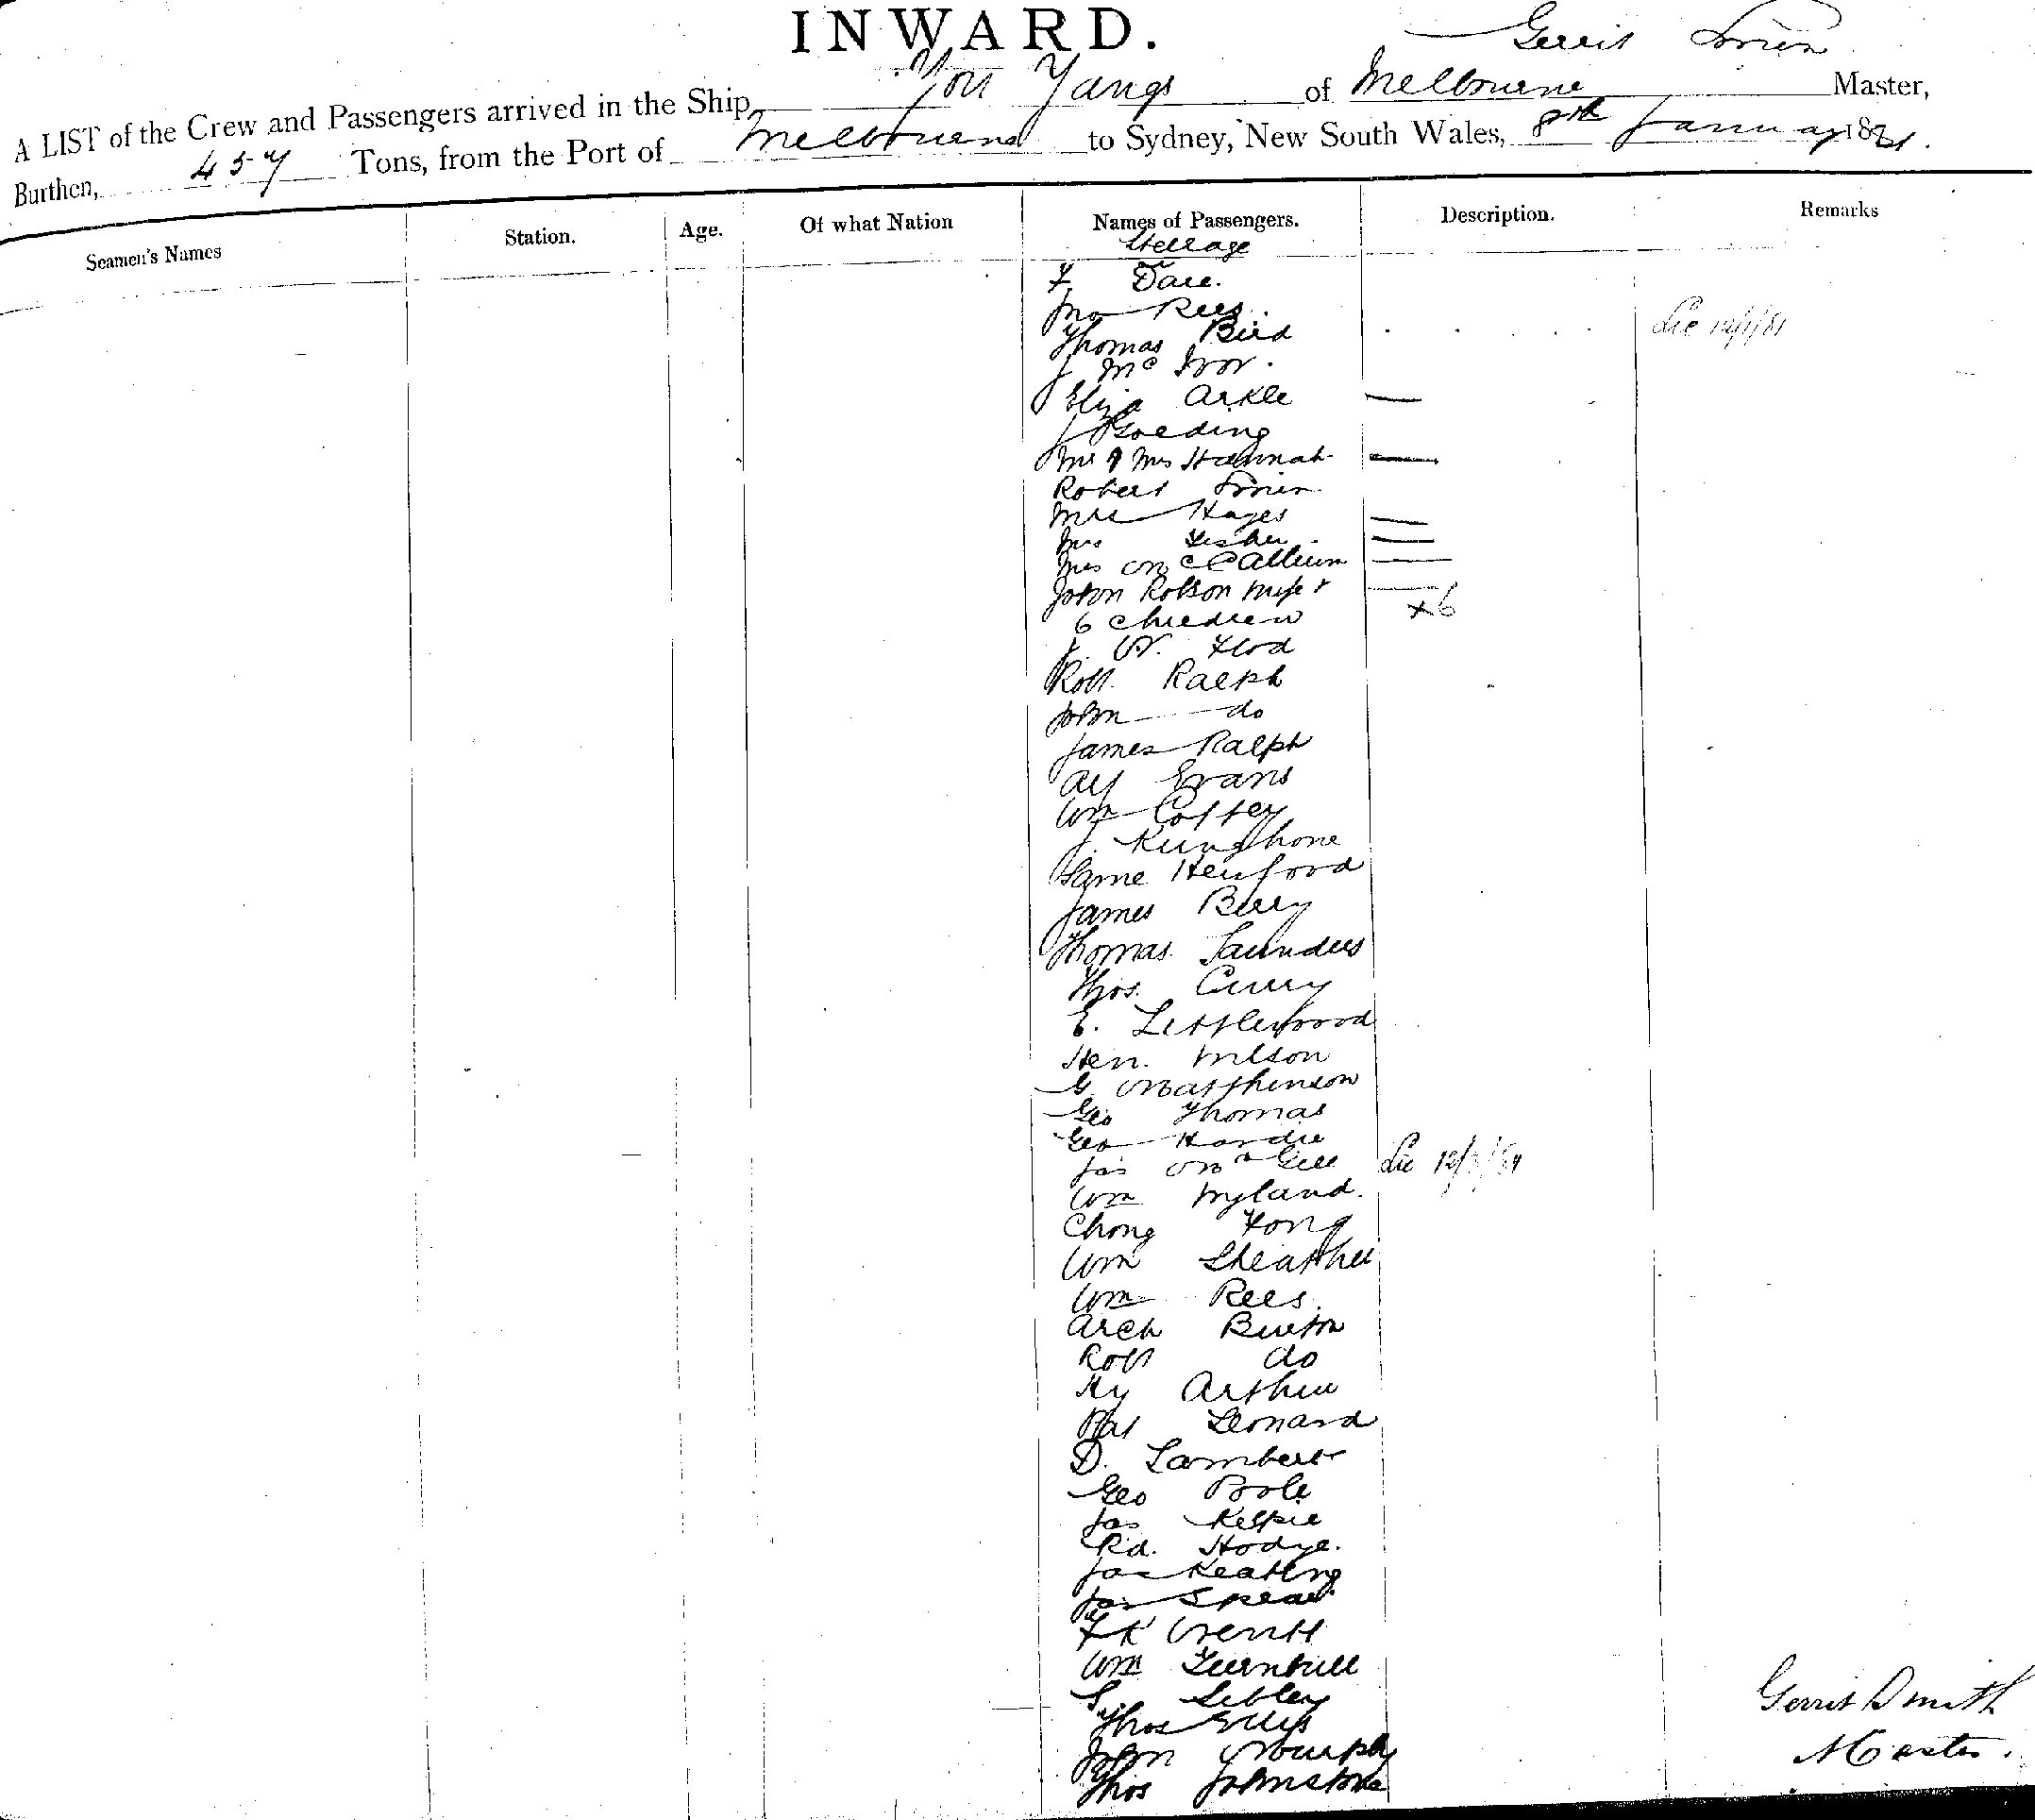 INWARD.
Gerrit Smith
A LIST of the Crew and Passengers arrived in the Ship You Yangs of Melbourne Master,
Burthen, 457 Tons, from the Port of Melbourne to Sydney, New South Wales, 8th January 1881.
Seamen's Names Station. Age. Of what Nation Names of Passengers. Description. Remarks
Steerage
F Dare.
Jno Rees.
Thomas Bird Lic
J McIvor.
Eliza Arkle
J Golding
Mr & Mrs Hannah
Robert
Mrs Hayes
Mrs Fisher
Mrs McCallum
John Robson wife &
6 Children x6
J. W.
Robt. Ralph
John do
James Ralph
Alf Evans
Wm Coffey
J.
Henford
James Berry
Thomas Saunders
Thos. Curry
E. Littlewood
Hen. Wilson
G. Matthinson
Geo Thomas
Geo Hardie
Jas McGill Lic
Wm Wyland.
Chong Fong
Wm Sheather
Wm Rees.
Arch Burton
Robt do
Hy Arthur
Pat Leonard
D. Lambert
Geo Poole
Jas Kelpie
Rd. Hodge.
Jas Keating
Jas Spear
F K
Wm Turnbull
S. Sibley
Thos Ellis
John Murphy
Thos Johnstone
Gerrit Smith
Master.